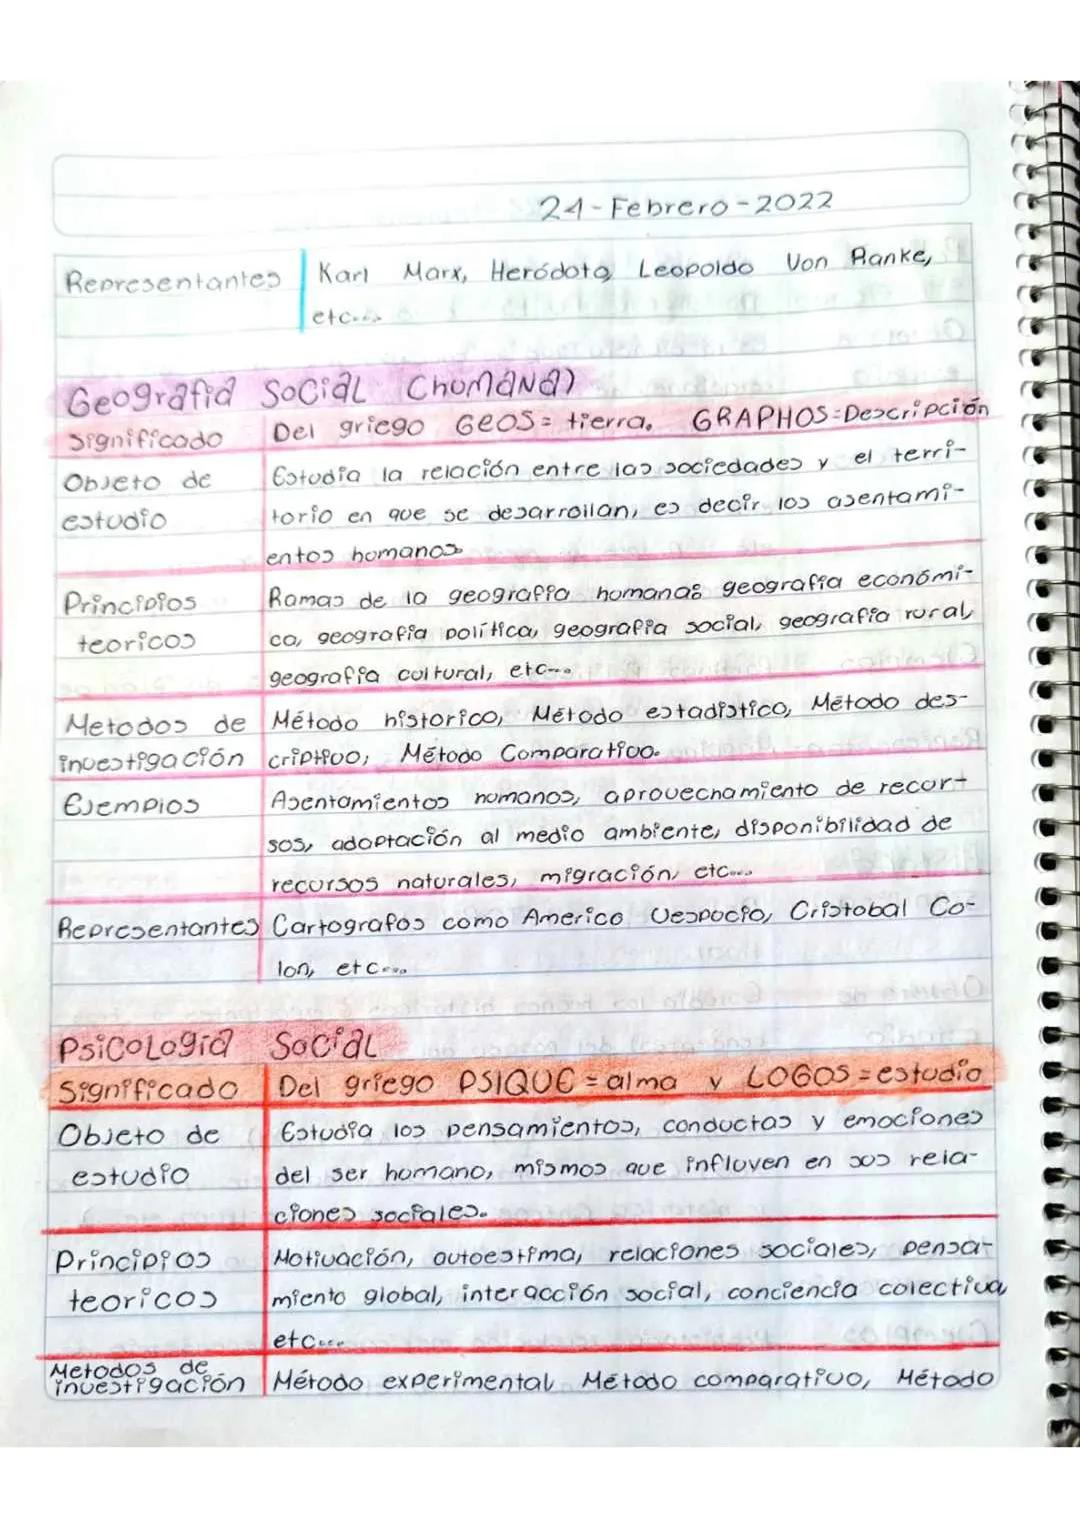 24-Febrero-2022
Representantes Karl Marx, Heródoto, Leopoldo Von Ranke,
etc...
Geografia Social (humana)
Significado Del griego GEOS= tierra. GRAPHOS=Descripción
Objeto de Estudia la relación entre las sociedades y el terri-
estudio torio en que se desarrollan, es decir los asentami-
entos humanos
Principios Ramas de la geografia humana: geografia económi-
teoricos ca, geografia política, geografia social, geografia rural,
geografia cultural, etc...
Metodos de Método historico, Método estadistico, Método des-
investigación criptivo, Método Comparativo.
Ejemplos Asentamientos humanos, aprovechamiento de recur-
sos, adaptación al medio ambiente, disponibilidad de
recursos naturales, migración, etc...
Representantes Cartografos como Americo Vespocio, Cristobal Co-
lon, etc...
Psicologia Social
Significado Del griego PSIQUE = alma y LOGOS = estudio
Objeto de Estudia los pensamientos, conductas y emociones
estudio del ser humano, mismos que influyen en sus rela-
ciones sociales.
Principios Motivación, autoestima, relaciones sociales, pensa-
teoricos miento global, interacción social, conciencia colectiva,
etc...
Metodos de
investigación Método experimental, Método comparativo, Método